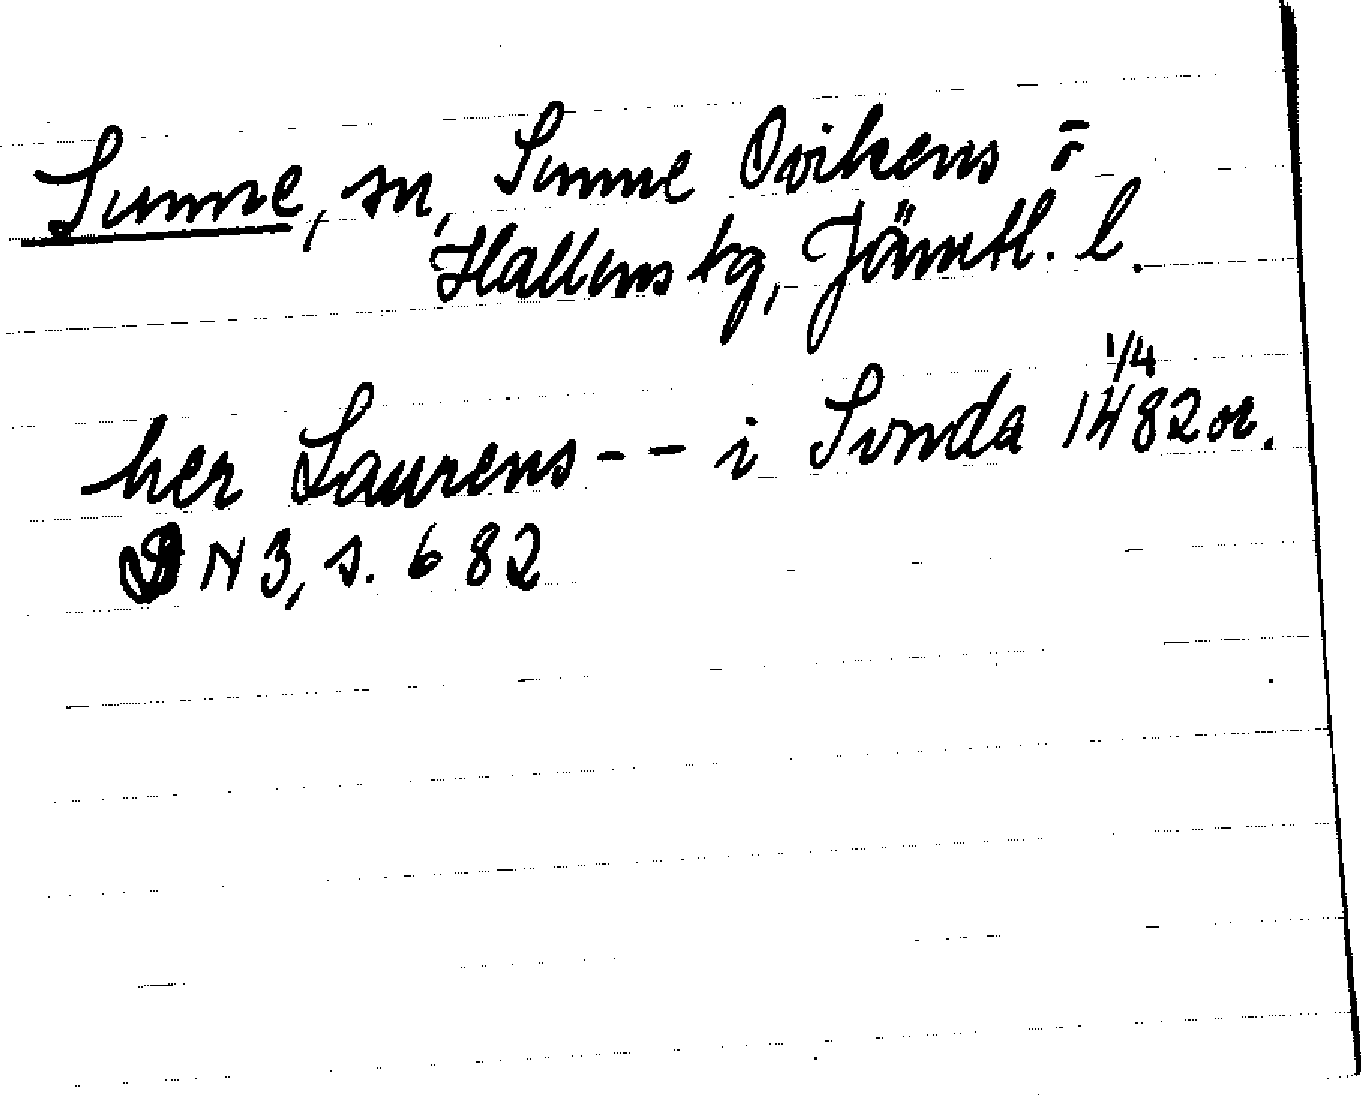 Sunne, sn, Sunne Ovikens o
Hallens tg, Jämtl. l.
her Laurens - - i Sunda 1/4 1482 or.
DN 3, s. 682